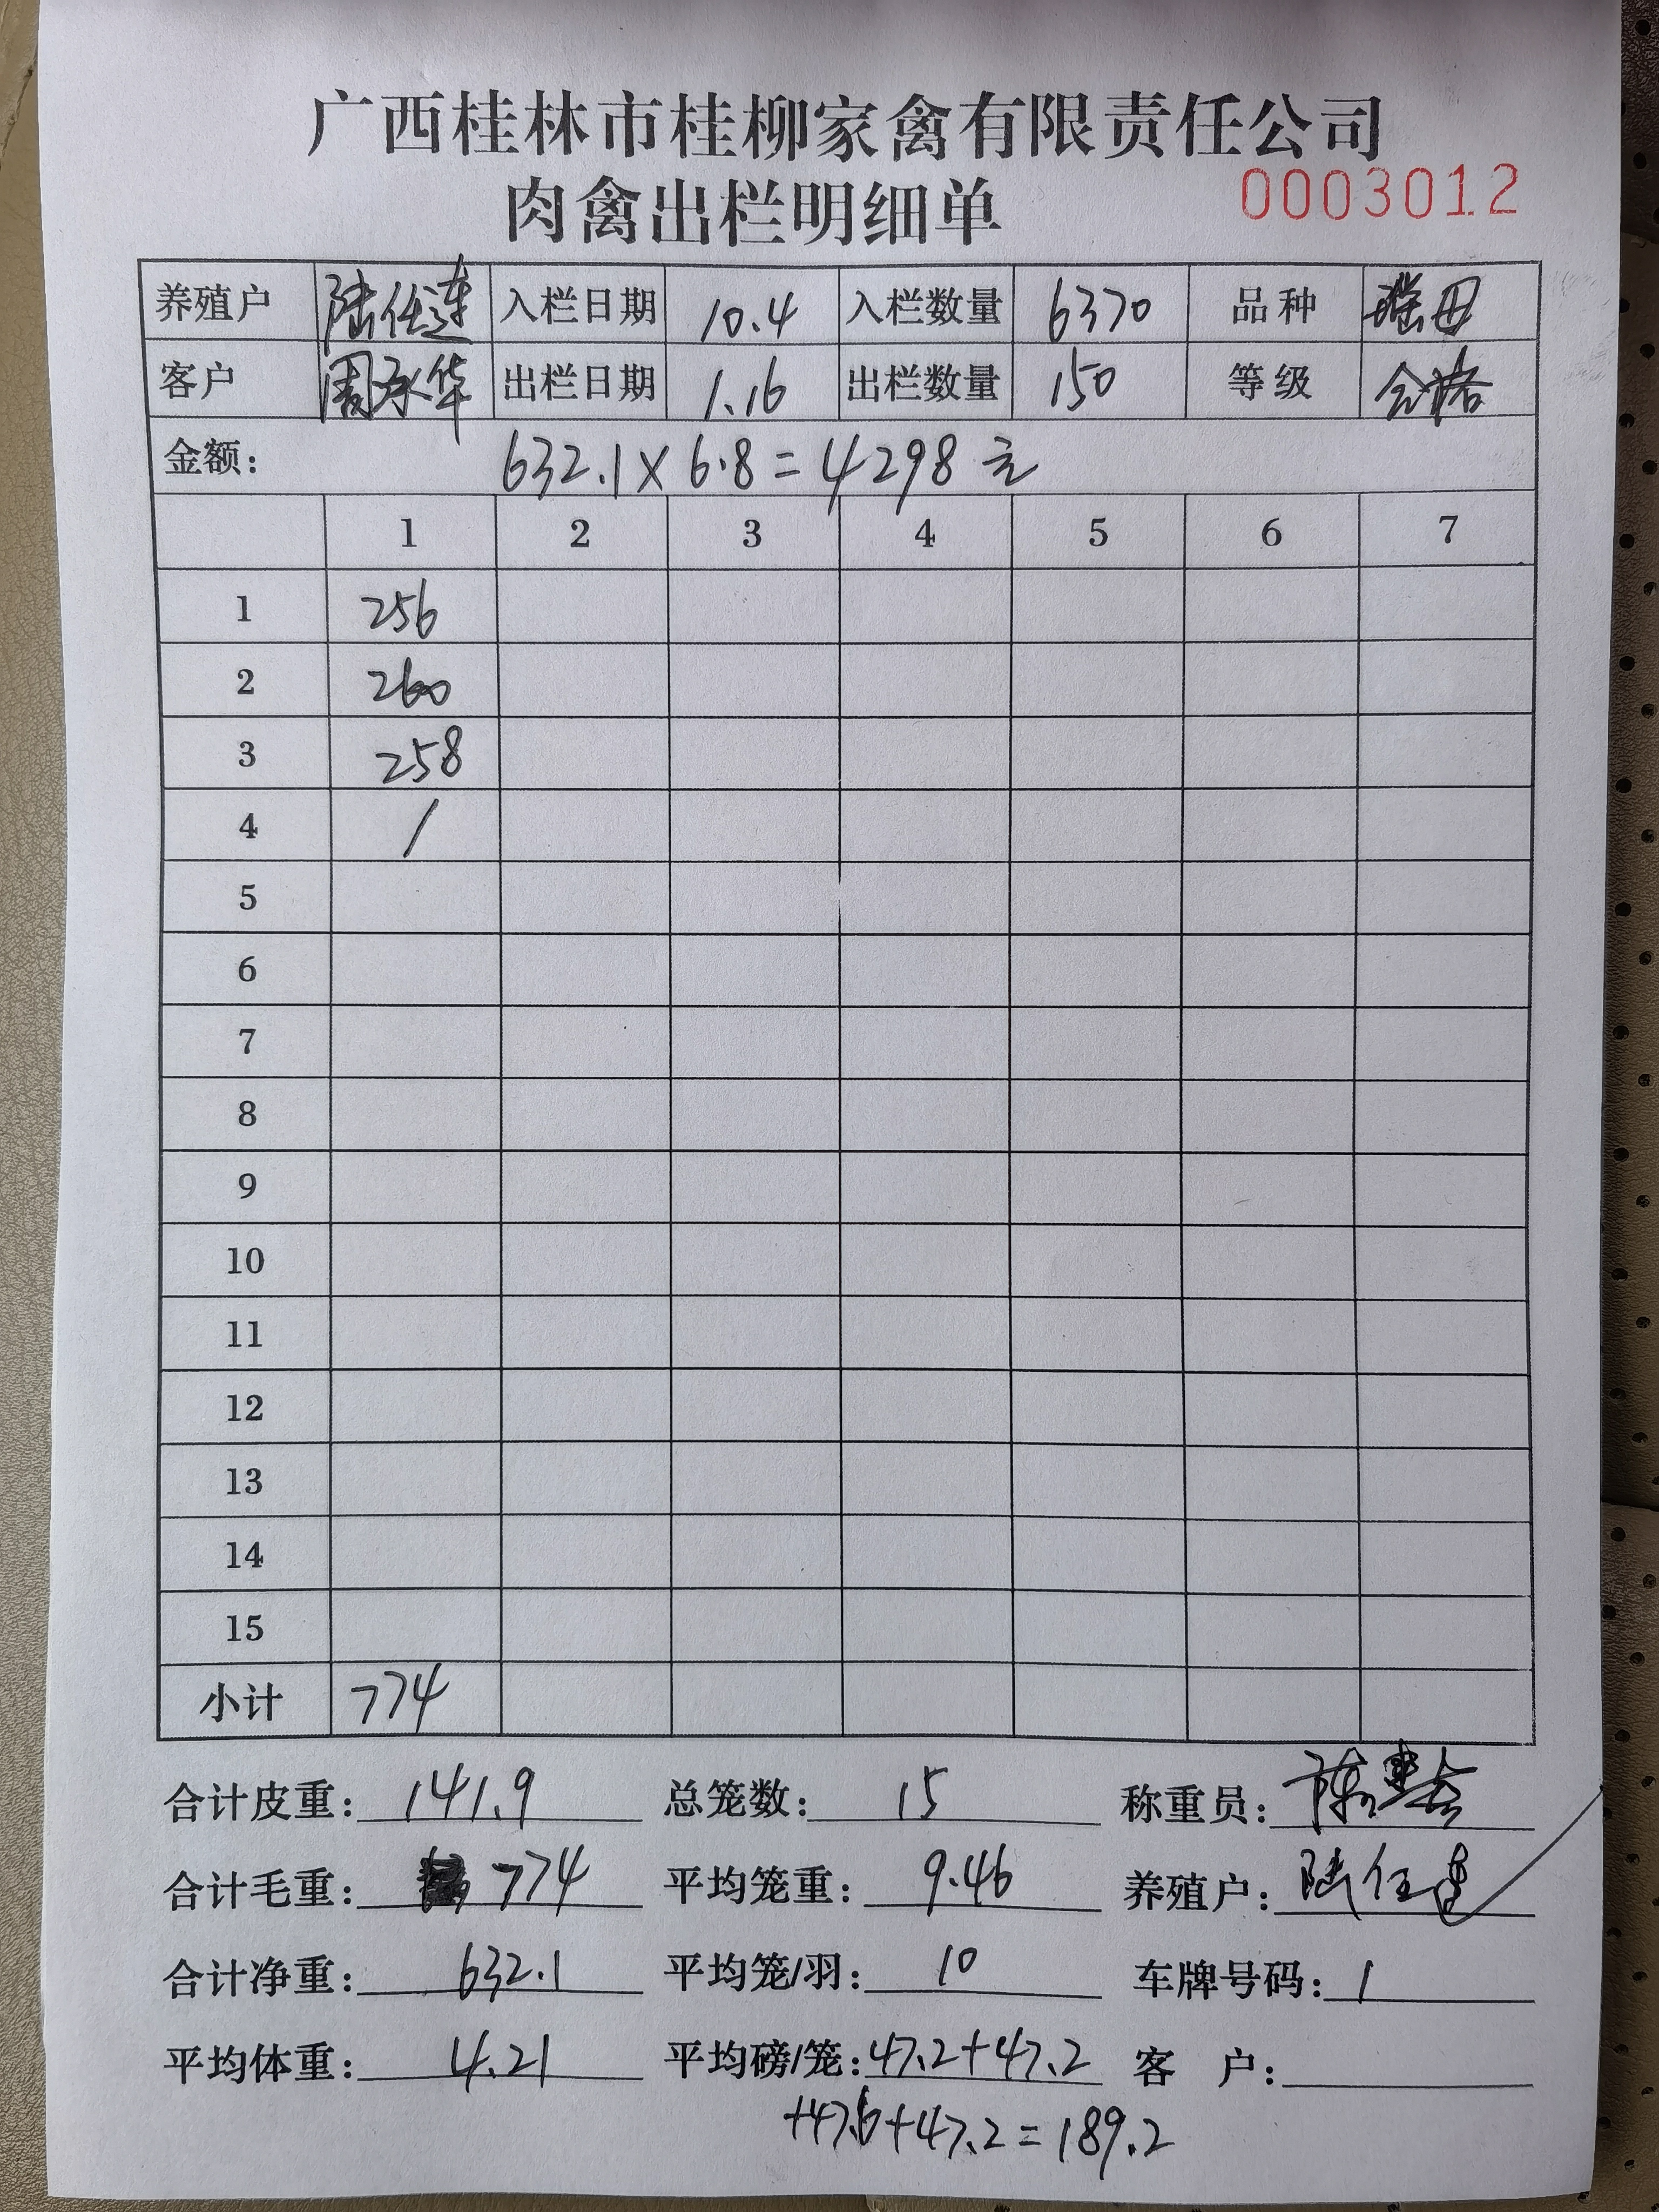 广西桂林市桂柳家禽有限责任公司
肉禽出栏明细单 0003012
养殖户 陆任连 入栏日期 10.4 入栏数量 6370 品种 瑶母
客户 周永华 出栏日期 1.16 出栏数量 150 等级 合格
金额: 632.1×6.8=4298元
1 2 3 4 5 6 7
1 256
2 260
3 258
4 /
5
6
7
8
9
10
11
12
13
14
15
小计 774
合计皮重: 141.9 总笼数: 15 称重员: 陈
合计毛重: 774 平均笼重: 9.46 养殖户: 陆任连
合计净重: 632.1 平均笼/羽: 10 车牌号码: 1
平均体重: 4.21 平均磅/笼: 47.2+47.2 客 户:
+47.6+47.2=189.2